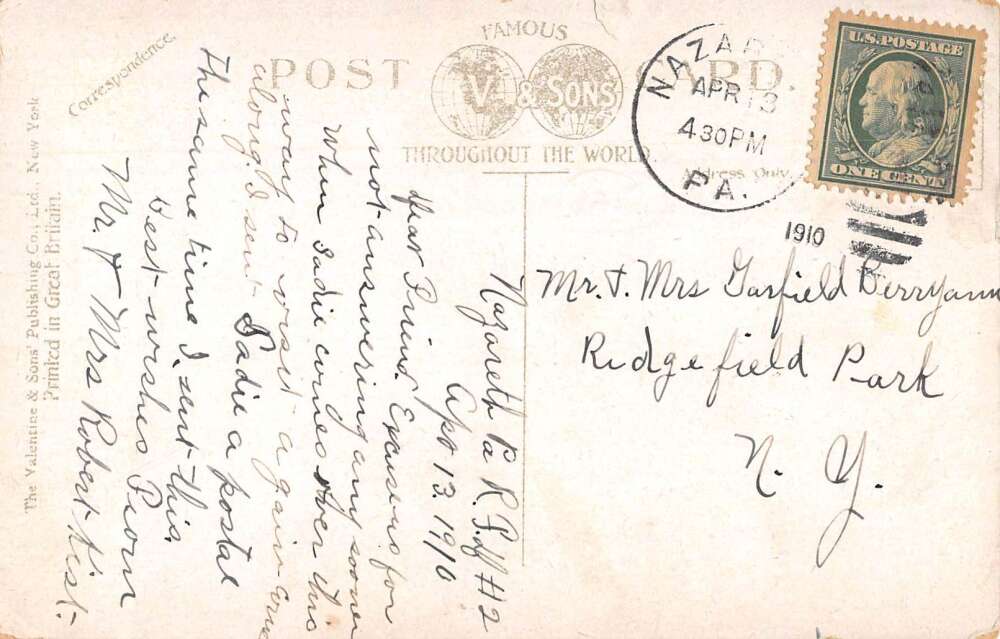 Correspondence.
FAMOUS
POST CARD.
V. & SONS
THROUGHOUT THE WORLD.
Address Only.
The Valentine & Sons' Publishing Co., Ltd., New York
Printed in Great Britain.
NAZA
APR 13
4 30 PM
PA.
1910
U.S. POSTAGE
ONE CENT
Mr. & Mrs Garfield Berryann
Ridgefield Park
N. Y.
Nazareth Pa R. F. D #2
Apr 13. 1910
Dear Friend. Excuse us for
not answering any sooner
When Sadie comes over this
way to visit again
along. I sent Sadie a postal
the same time I sent this.
best wishes From
Mr. & Mrs Robert